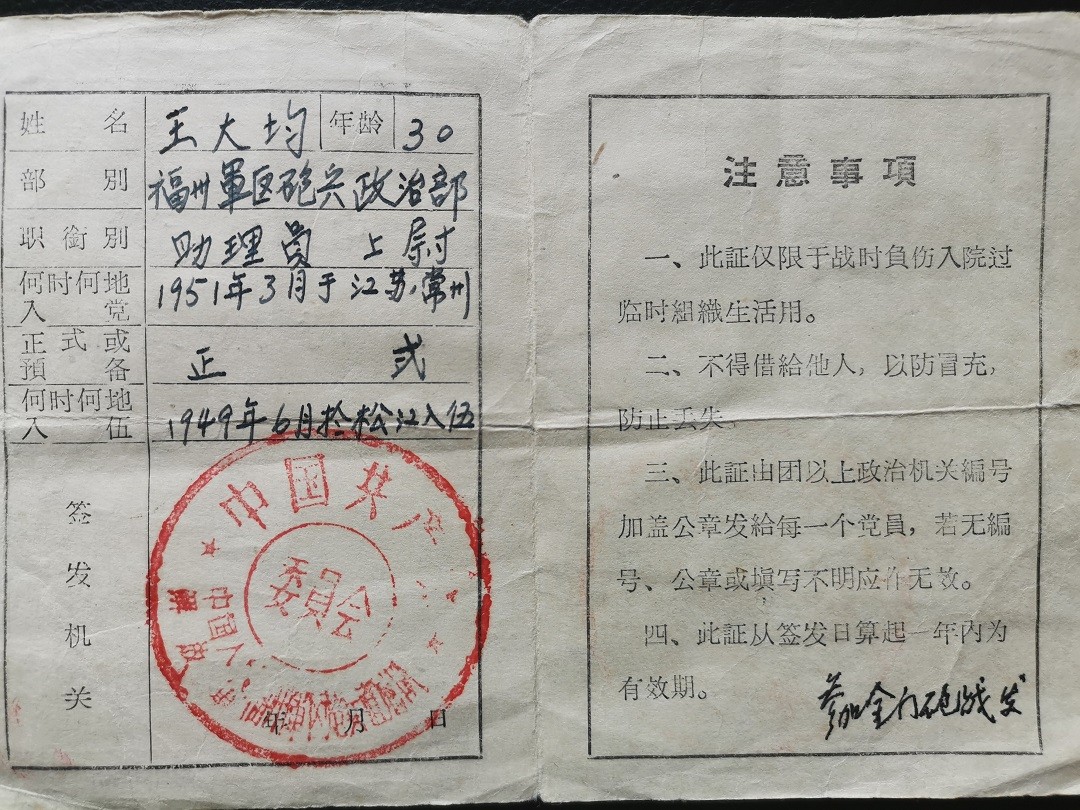 姓名 王大均 年龄 30
部別 福州軍区砲兵政治部
职銜別 助理员 上尉
何时何地入党 1951年3月于江苏常州
正式或預备 正式
何时何地入伍 1949年6月於松江入伍
签发机关
中国共产
委員会
年 月 日
注意事項
一、此証仅限于战时負伤入院过
临时組織生活用。
二、不得借給他人，以防冒充，
防止丢失。
三、此証由团以上政治机关編号
加盖公章发給每一个党員，若无編
号、公章或填写不明应作无效。
四、此証从签发日算起一年內为
有效期。
参加金门砲战发